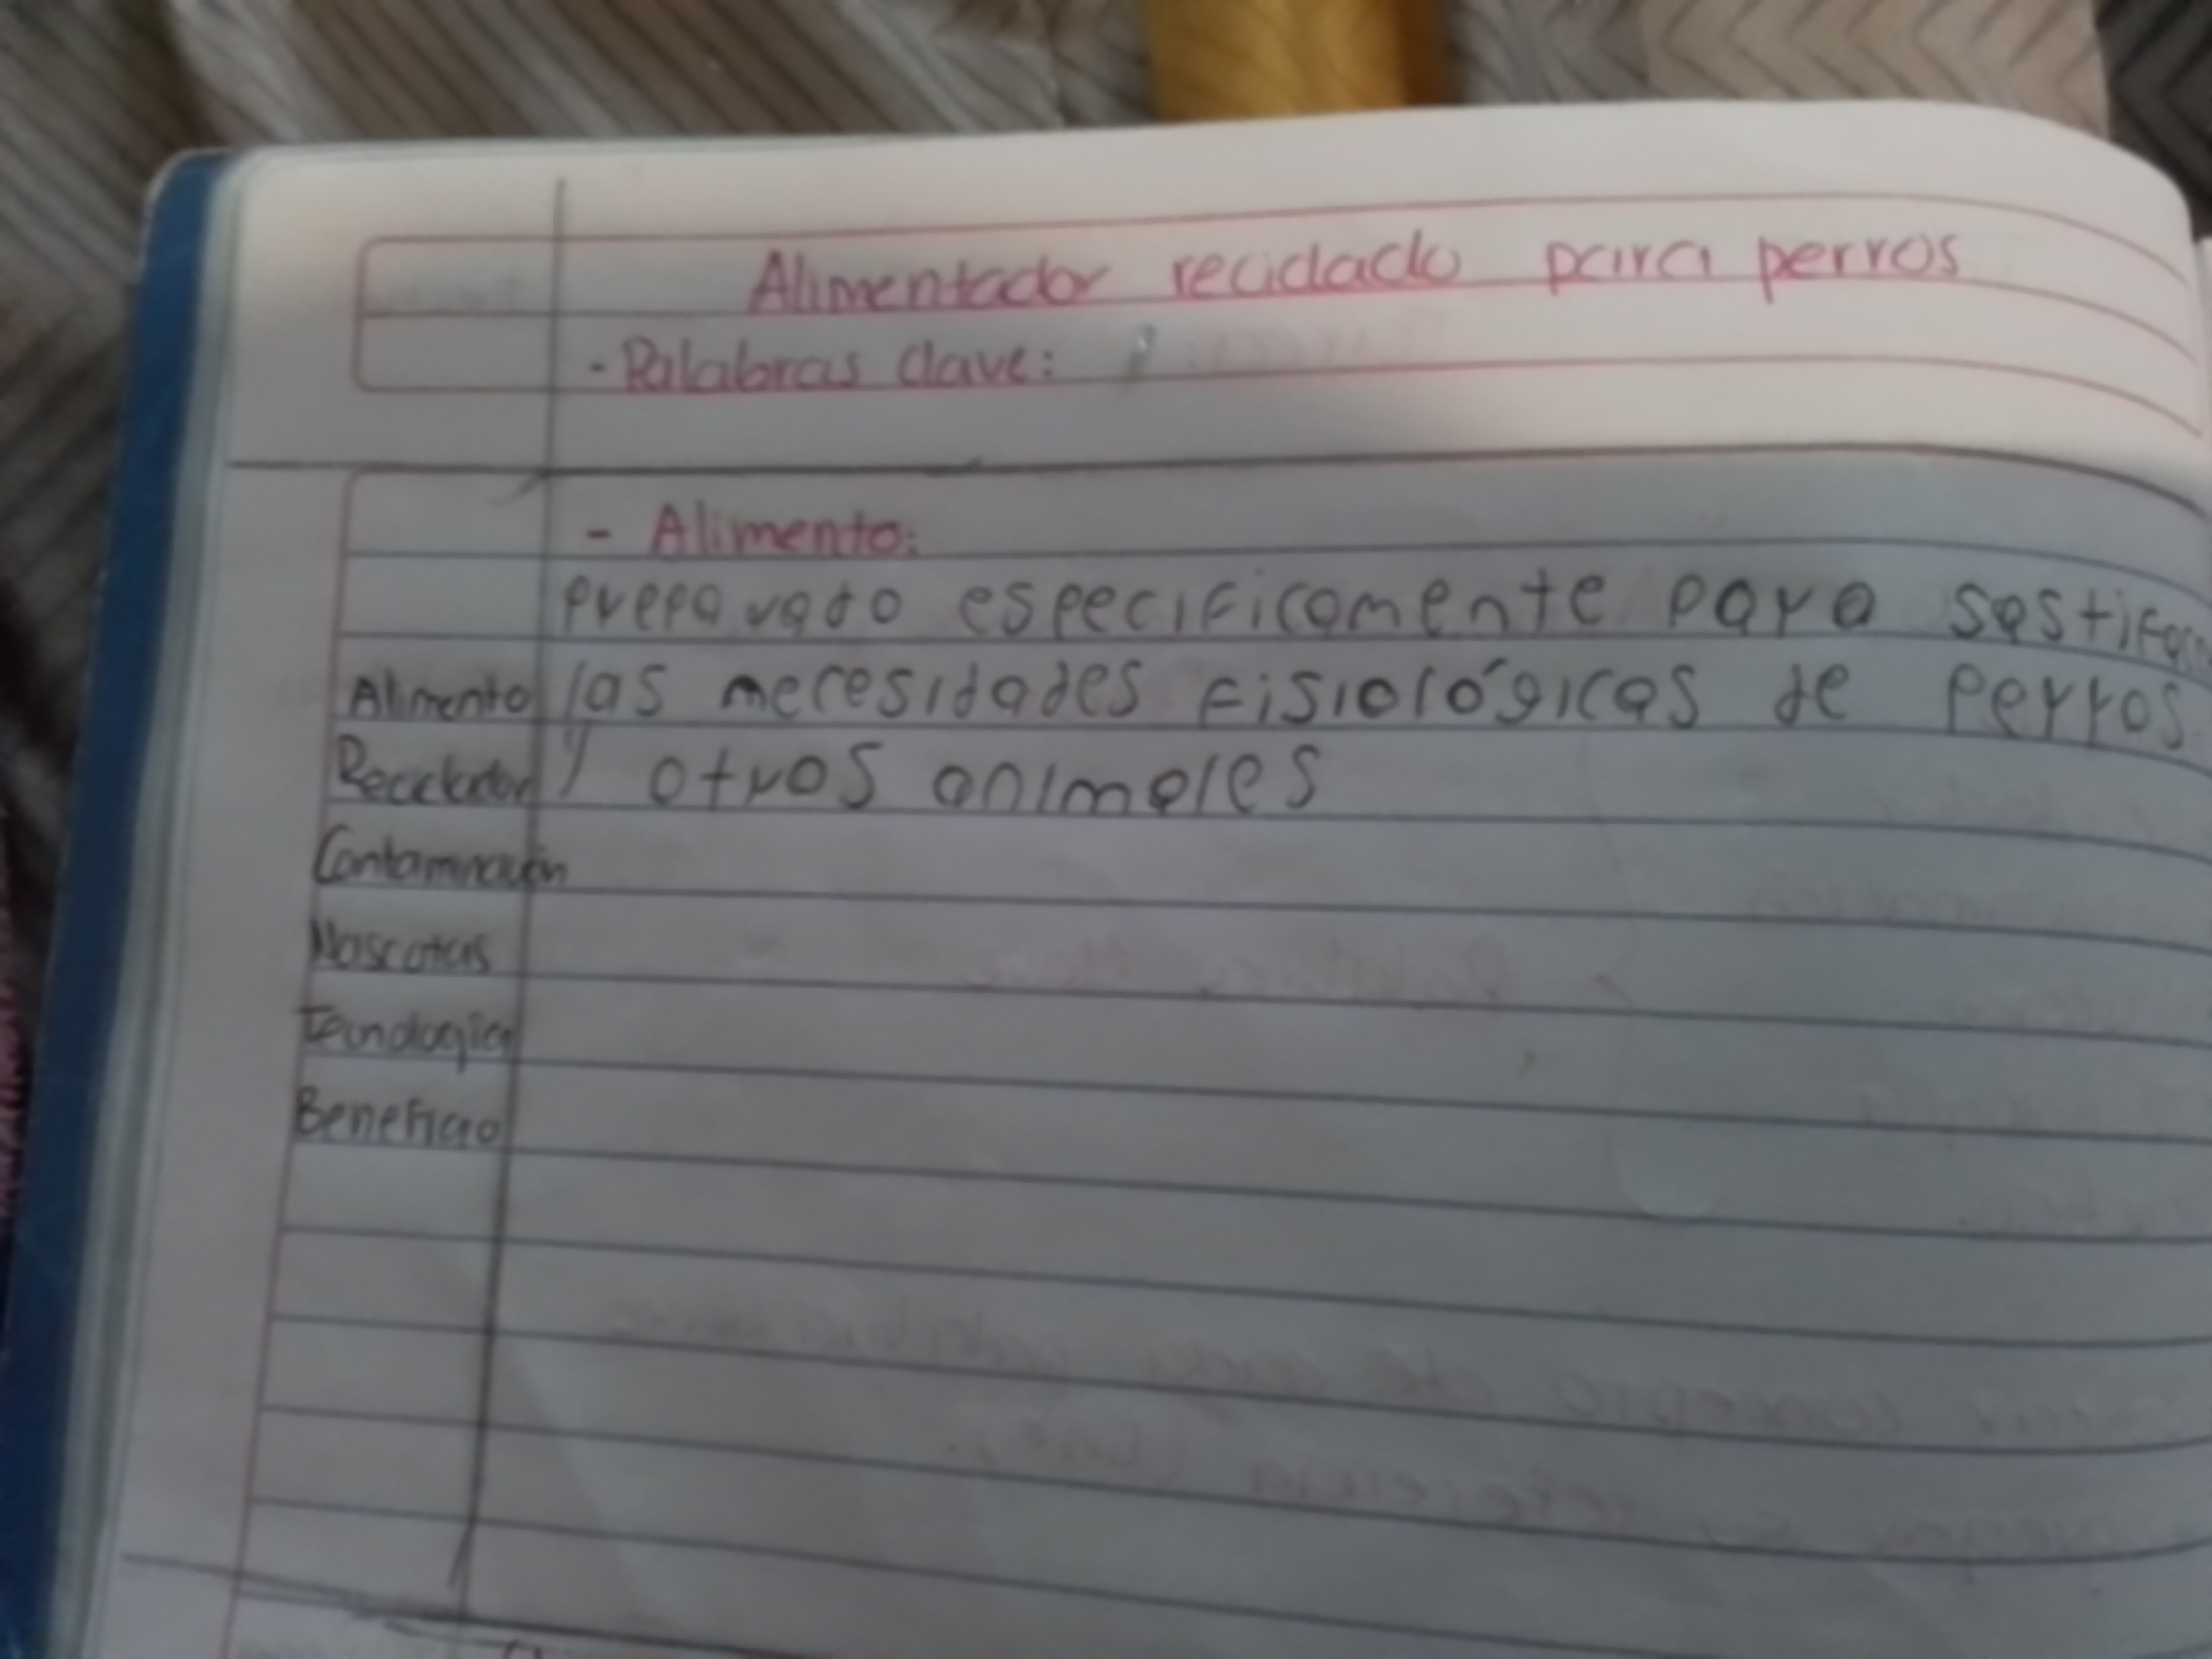 Alimentador reciclado para perros
- Palabras clave:
- Alimento:
preparado especificamente para sastifa
Alimento las necesidades fisiológicas de perros
Reciclador y otros animales
Contaminación
Mascotas
Tecnologica
Beneficio